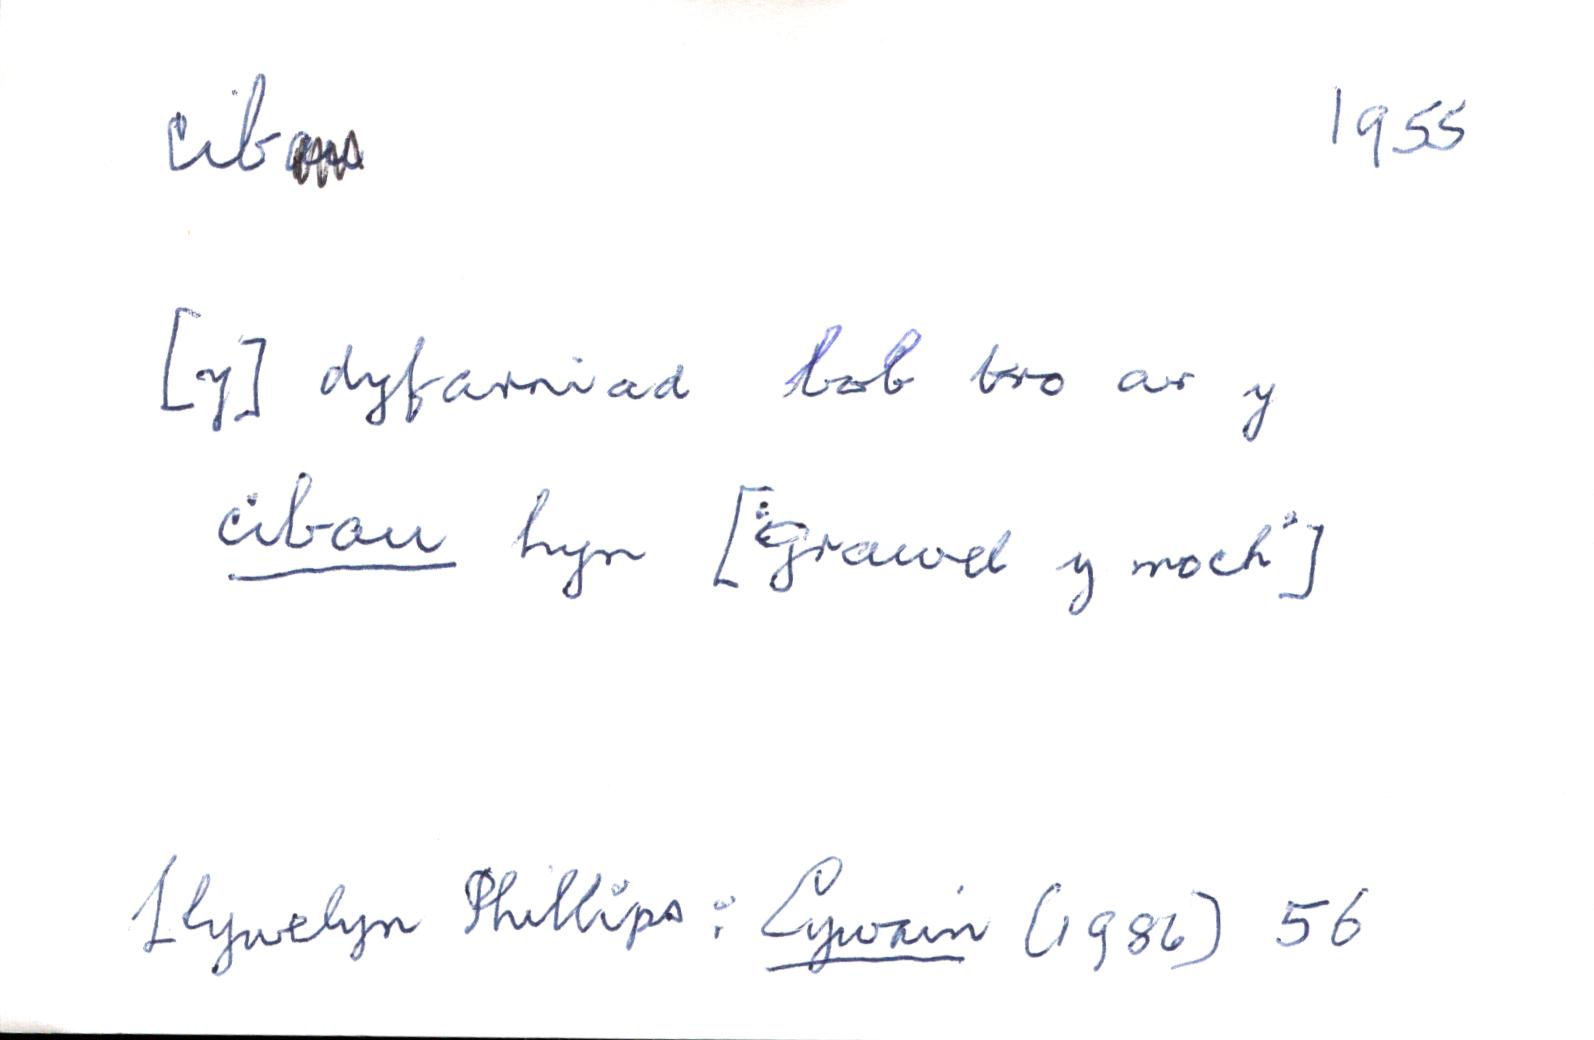 cib 1955
[y] dyfarniad bob tro ar y
cibau hyn ["Grawel y moch"]
Llywelyn Phillips: Cywain (1986) 56